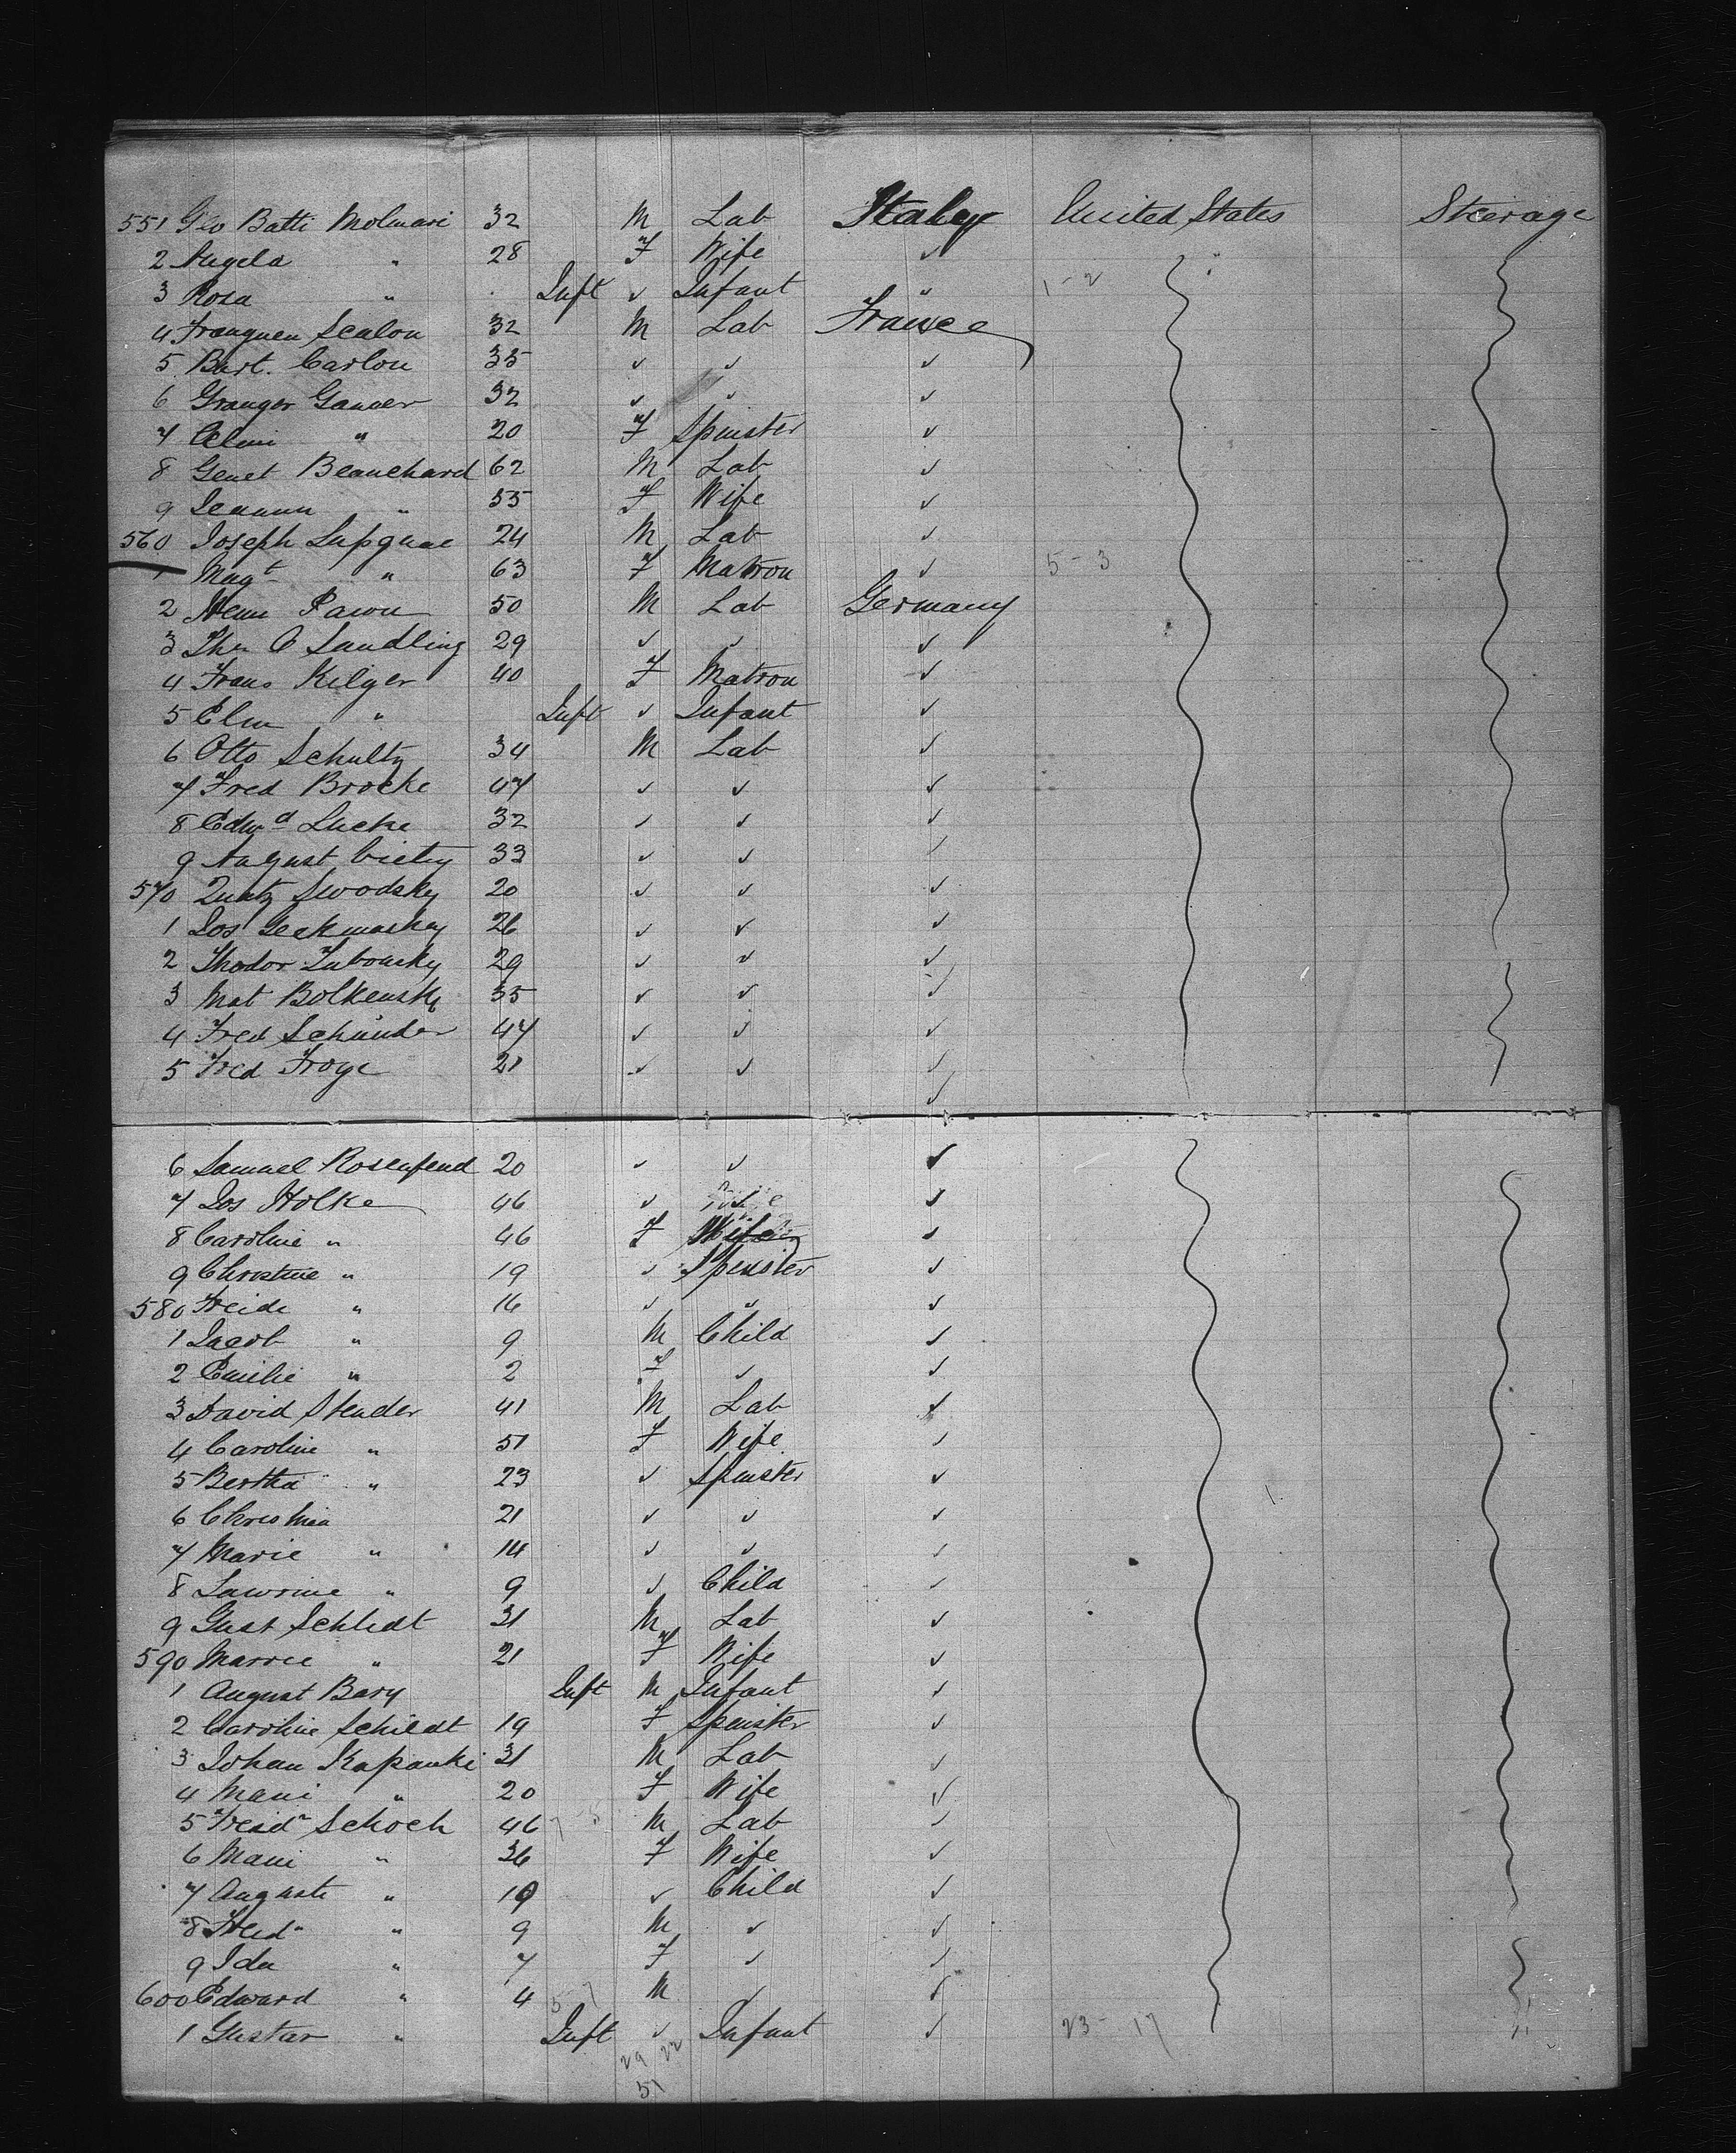 551 Geo Batti Molinari 32 M Lab Italy United States Steerage
2 Angela " 28 F Wife ✓
3 Rosa " Inft ✓ Infant " 1-2
4 Scalon 32 M Lab France
5 Bart. Carlon 35 ✓ ✓ ✓
6 Granger Ganner 32 ✓ ✓ ✓
7 " 20 F Spinster ✓
8 Genet Beauchard 62 M Lab ✓
9 " 55 F Wife ✓
560 Joseph 24 M Lab ✓
1 Magt " 63 F Matron ✓ 5-3
2 50 M Lab Germany
3 C Sandling 29 ✓ ✓ ✓
4 Frans Kilger 40 F Matron ✓
5 Elm " Inft ✓ Infant ✓
6 Otto Schultz 34 M Lab ✓
7 Fred Brocke 47 ✓ ✓ ✓
8 Edwd Lucke 32 ✓ ✓ ✓
9 August 33 ✓ ✓ ✓
570 Swodsky 20 ✓ ✓ ✓
1 Jos 26 ✓ ✓ ✓
2 Thodor Zubousky 29 ✓ ✓ ✓
3 Mat 35 ✓ ✓ ✓
4 Fred Schunder 47 ✓ ✓ ✓
5 Fred Froge 21 ✓ ✓ ✓
✓
6 Samuel Rosenfend 20 ✓ ✓ ✓
7 Jos Holke 46 ✓ ✓
8 Caroline " 46 F Wife ✓
9 Christine " 19 ✓ Spinster ✓
580 " 16 ✓ " ✓
1 Jacob " 9 M Child ✓
2 Emilie " 2 F ✓ ✓
3 David Stender 41 M Lab ✓
4 Caroline " 51 F Wife ✓
5 Bertha " 23 ✓ Spinster ✓
6 Christina 21 ✓ ✓ ✓
7 Marie " 14 ✓ ✓ ✓
8 Lawrine " 9 ✓ Child ✓
9 Gust Schlidt 31 M Lab ✓
590 Marrie " 21 F Wife ✓
1 August Bary Inft M Infant ✓
2 Caroline Schildt 19 F Spinster ✓
3 Johan Kapanki 31 M Lab ✓
4 Mari " 20 F Wife ✓
5 Schoch 46 M Lab ✓
6 Mari " 36 F Wife ✓
7 Auguste " 10 ✓ Child ✓
8 " 9 M ✓ ✓
9 Ida " 7 F ✓ ✓
600 Edward " 4 5-7 M ✓ ✓
1 Gustav " Inft ✓ Infant ✓ 23-17
29 22
51